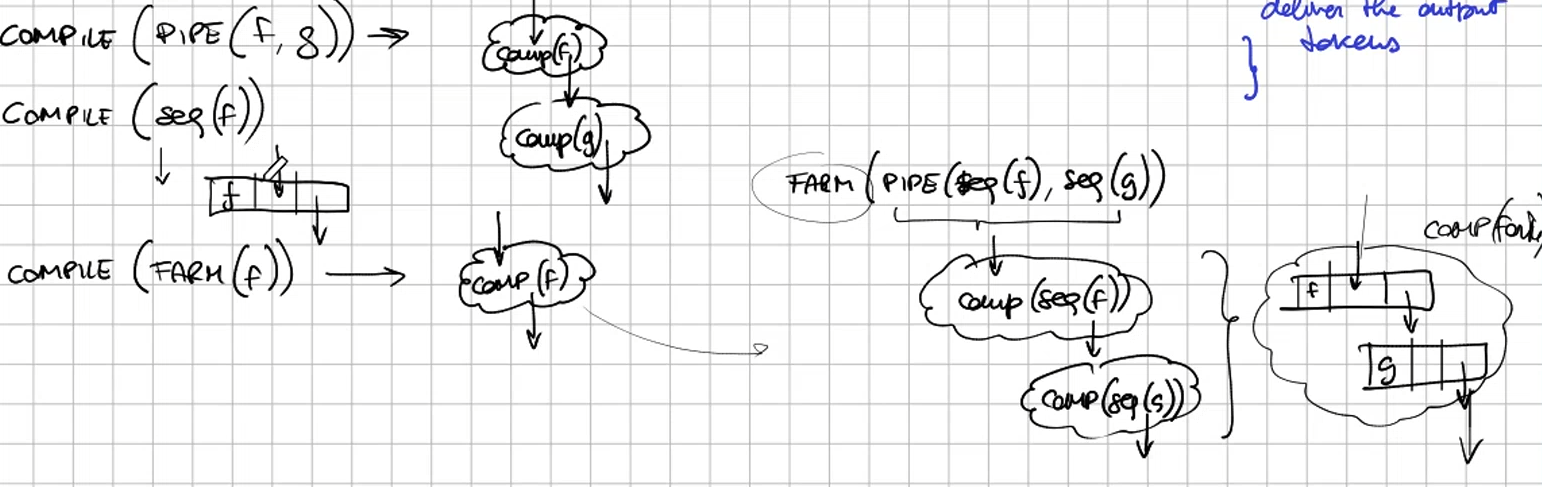 COMPILE (PIPE(f, g)) →
comp(f)
comp(g)
COMPILE (seq(f))
f
COMPILE (FARM(f)) →
comp(f)
deliver the output
tokens
}
FARM (PIPE(seq(f), seq(g)))
comp (seq(f))
comp(seq(g))
f
g